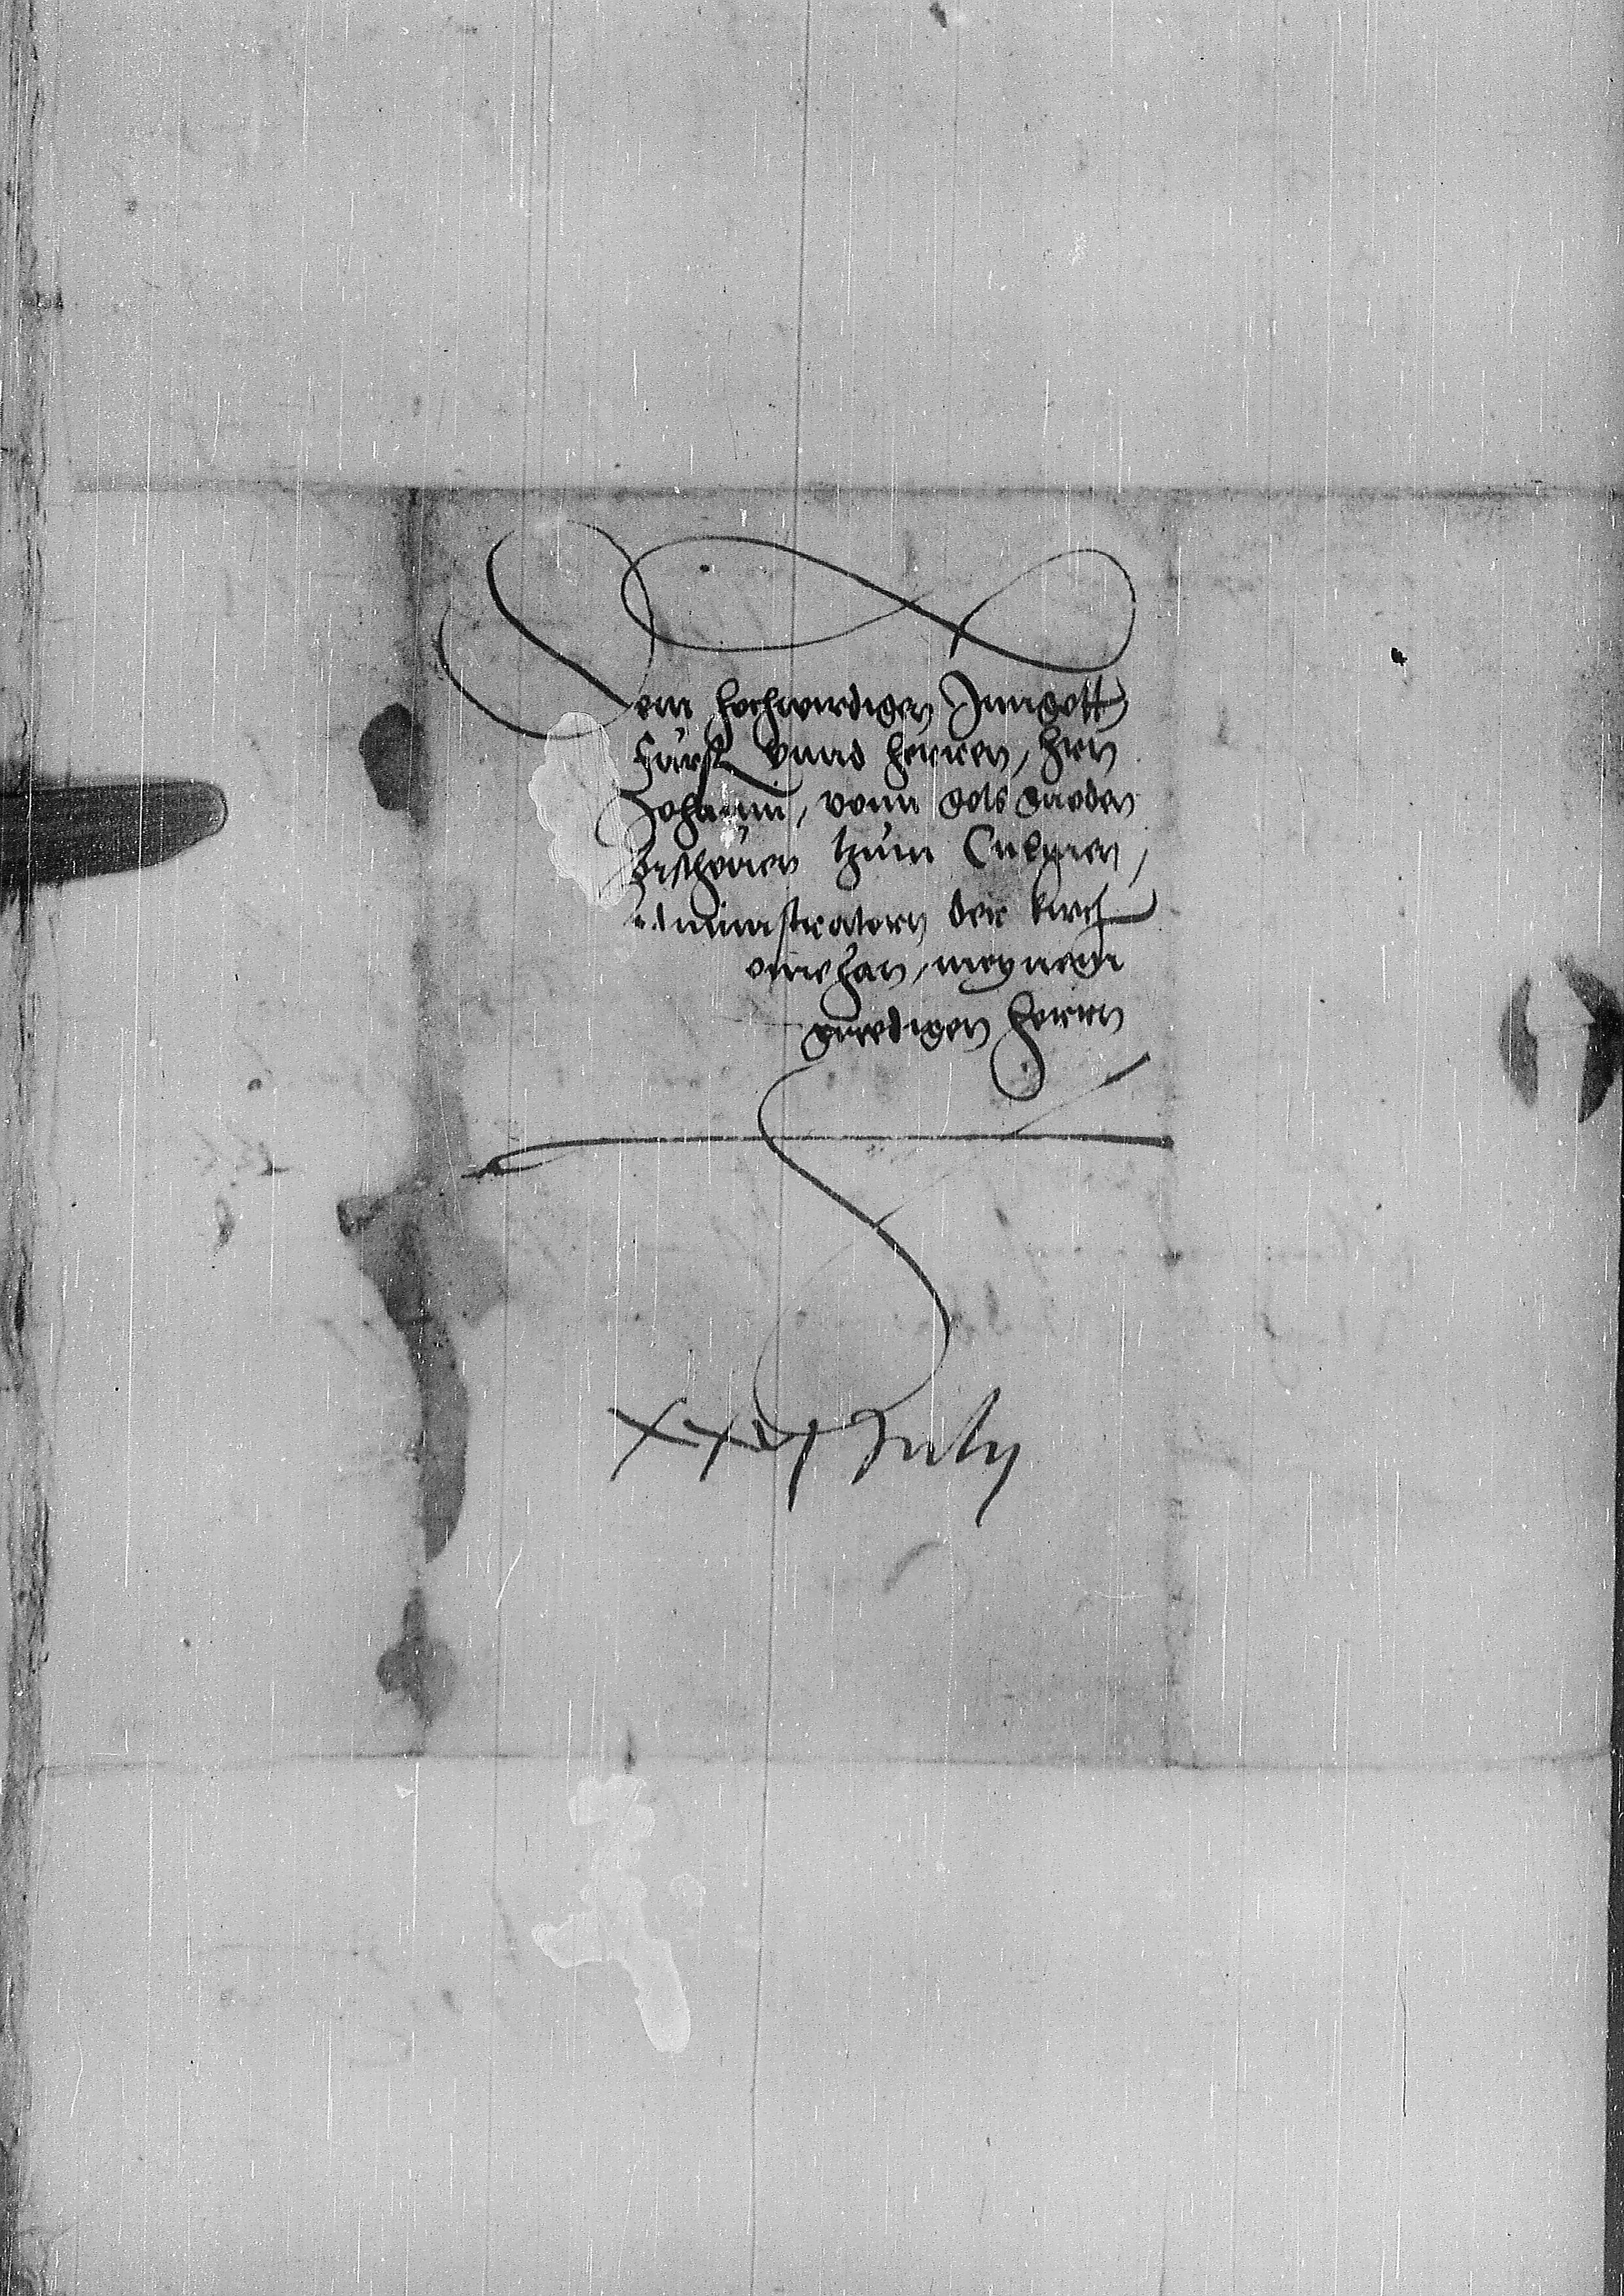 Dem hochwirdigen Inngott
Fürst vnnd herren, hrn
Johann, vonn gots gnaden
Bischouen tzum Culmen,
administratorn der kirch
meynem
gnedigen herrn
July